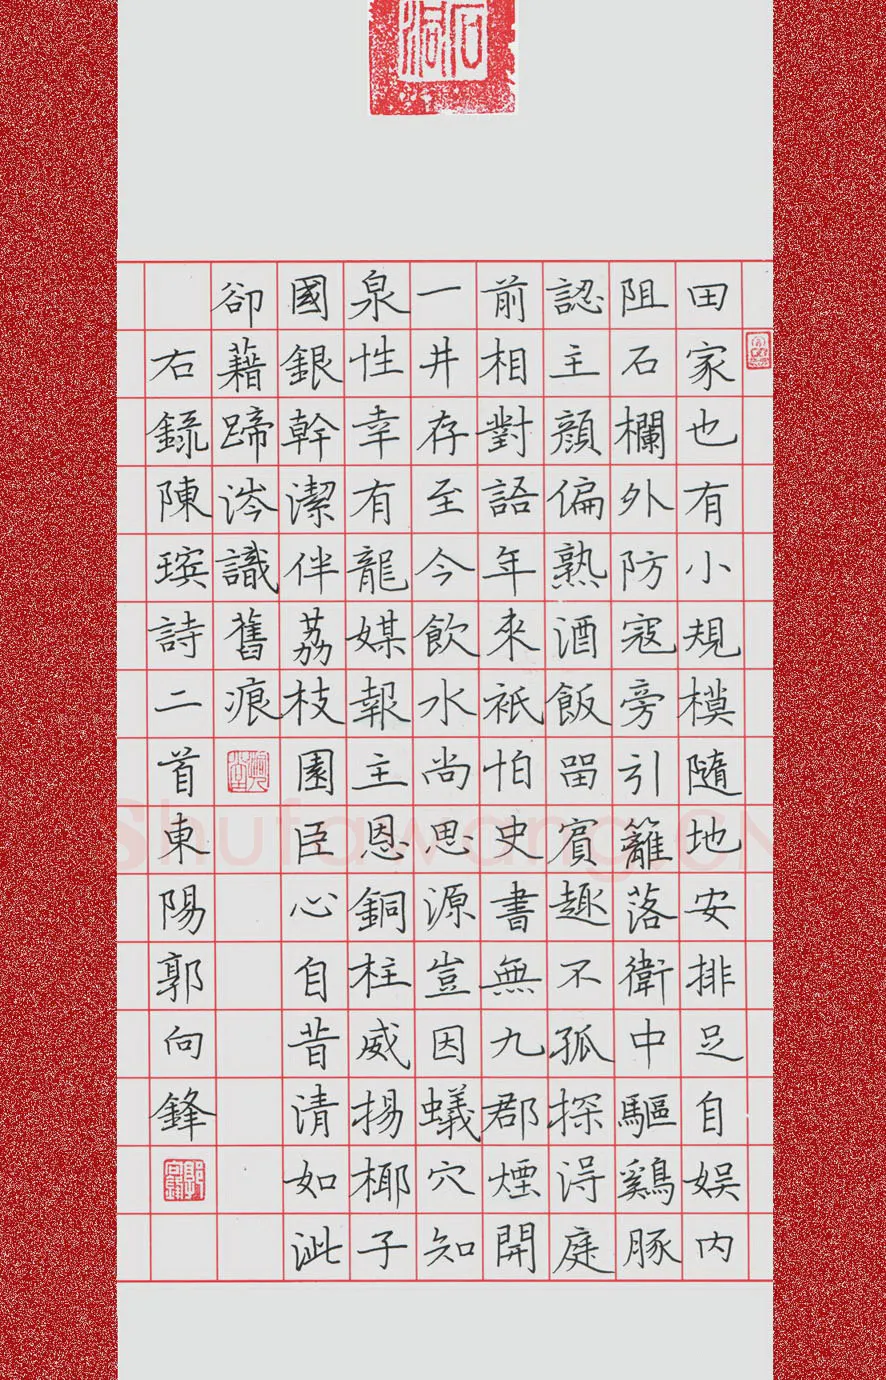 田家也有小規模隨地安排足自娱内
阻石欄外防寇旁引籬落衛中驅鷄豚
認主顏偏熟酒飯留賓趣不孤探得庭
前相對語年來衹怕史書無九郡煙開
一井存至今飲水尚思源豈因蟻穴知
泉性幸有龍媒報主恩銅柱威揚椰子
國銀幹潔伴荔枝園臣心自昔清如泚
卻藉蹄涔識舊痕
右録陳璸詩二首東陽郭向鋒
Shufawang.CN